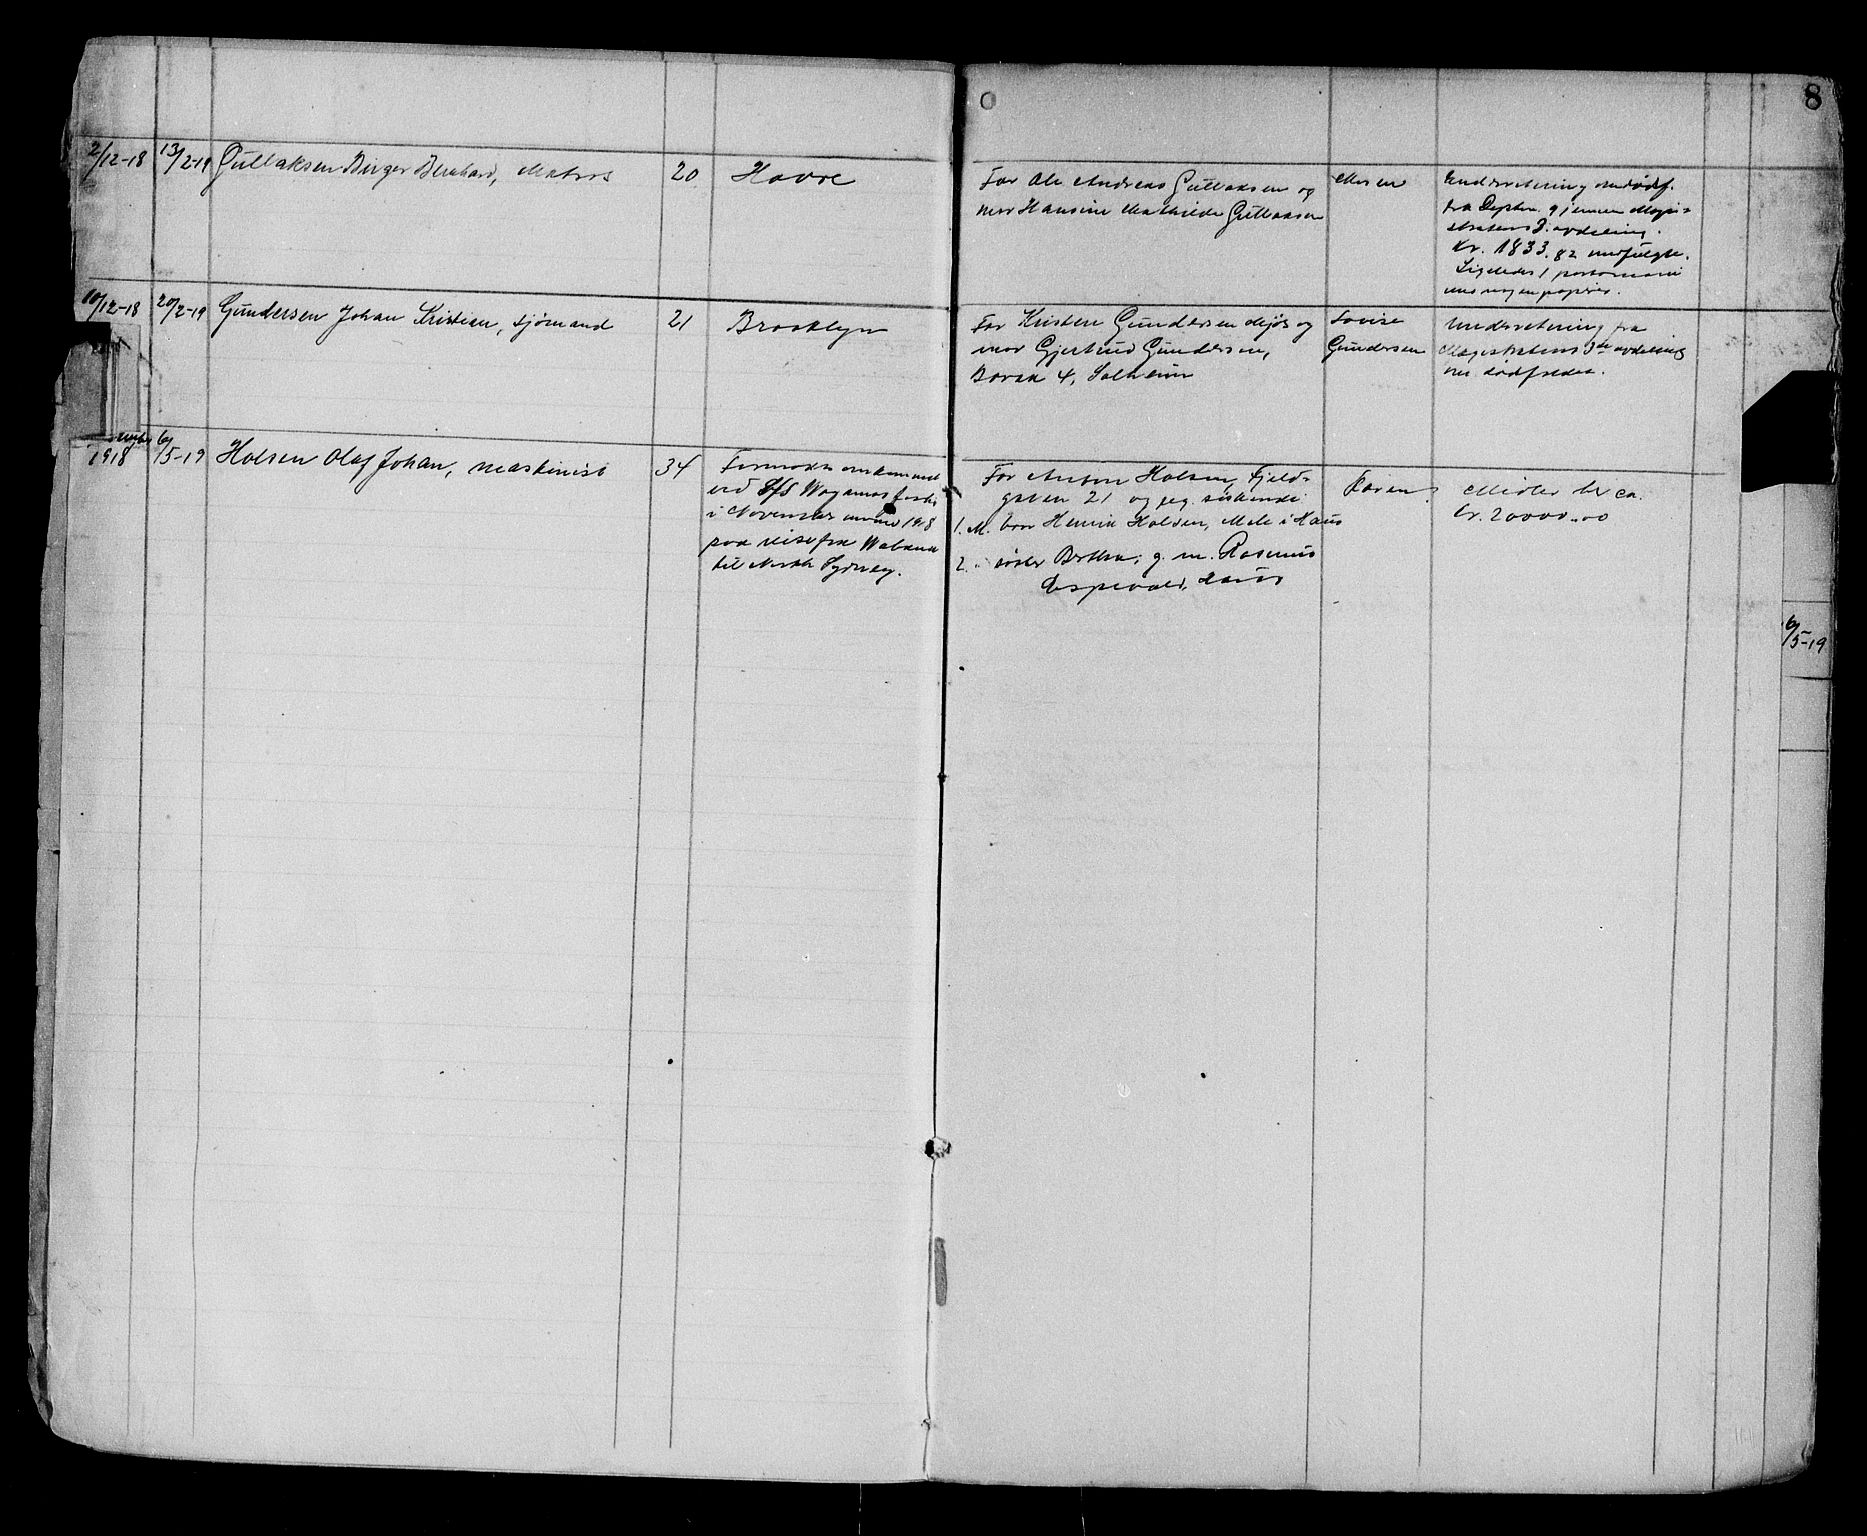 8
2/12-18 13/2-19 Gullaksen Birger Bernhard, Matros 20 Havre
Far Ole Andreas Gullaksen og
mor Hansine Mathilde Gullaksen
Moren
Underretning om dødsf.
fra Depten. gjennem Magi-
stratens 3. avdeling.
Kr. 1833.82 medfulgte.
Ligeledes 1 portemoni
med nogen papirer.
10/12-18 20/2-19 Gundersen Johan Kristian, sjømand 21 Brooklyn
Far Kristen Gundersen og
mor Gjertrud Gundersen,
4, Solheim
Lovise
Gundersen
Underretning fra
Magistratens 3die avdeling
om dødsfaldet.
1918 6/5-19 Holsen Olaf Johan, maskinist 34
Formodes omkommet
ved S/S forlis
i November 1918
paa reise fra Wabana
til North Sydney.
Far Anton Holsen, Fjeld-
gaten 21 og søskende
1. M. bror Henrik Holsen, Mele i Haus
2. søster Bertha, g. m. Rasmus
Espevold, Haus
Faren
Midler ca.
kr. 20000.00
6/5-19